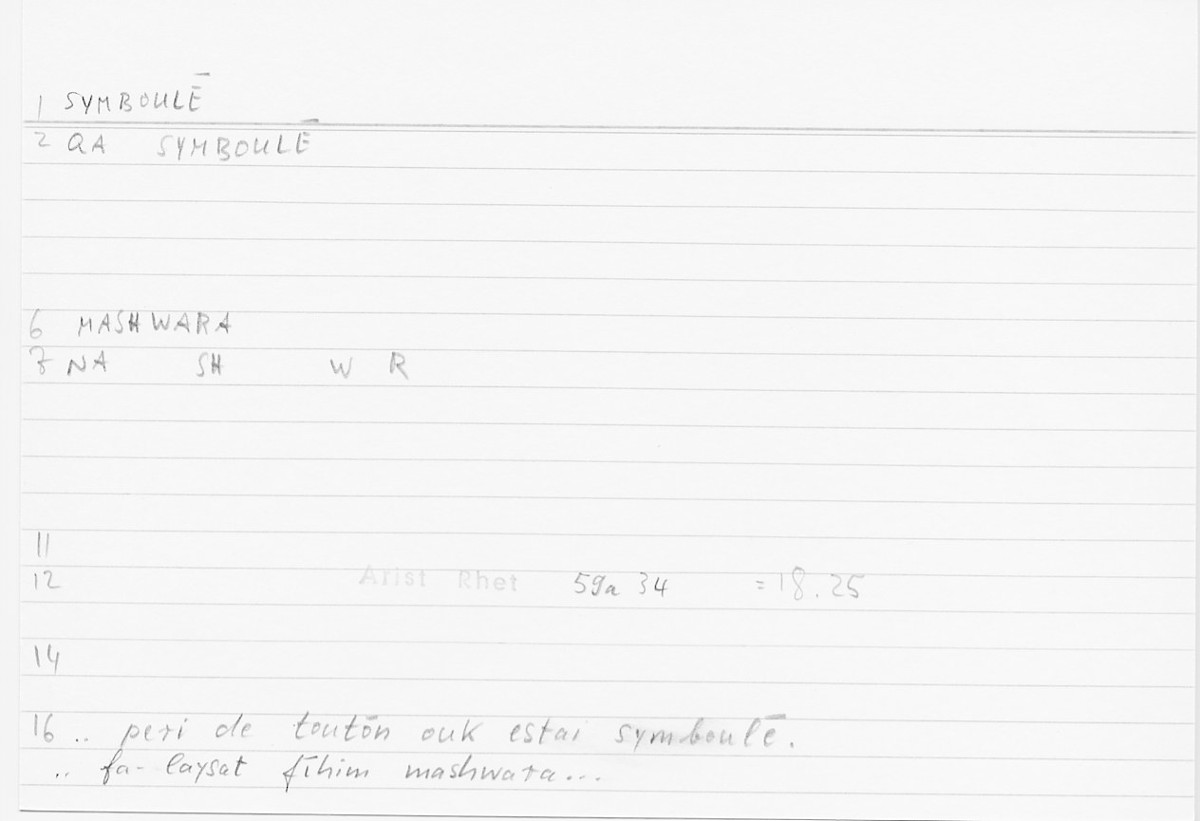 1 SYMBOULĒ
2 QA SYMBOULĒ
6 MASHWARA
7 NA SH W R
11
12 Arist Rhet 59a 34 = 18.25
14
16 .. peri de toutōn ouk estai symboulē.
.. fa- laysat fīhim mashwara...